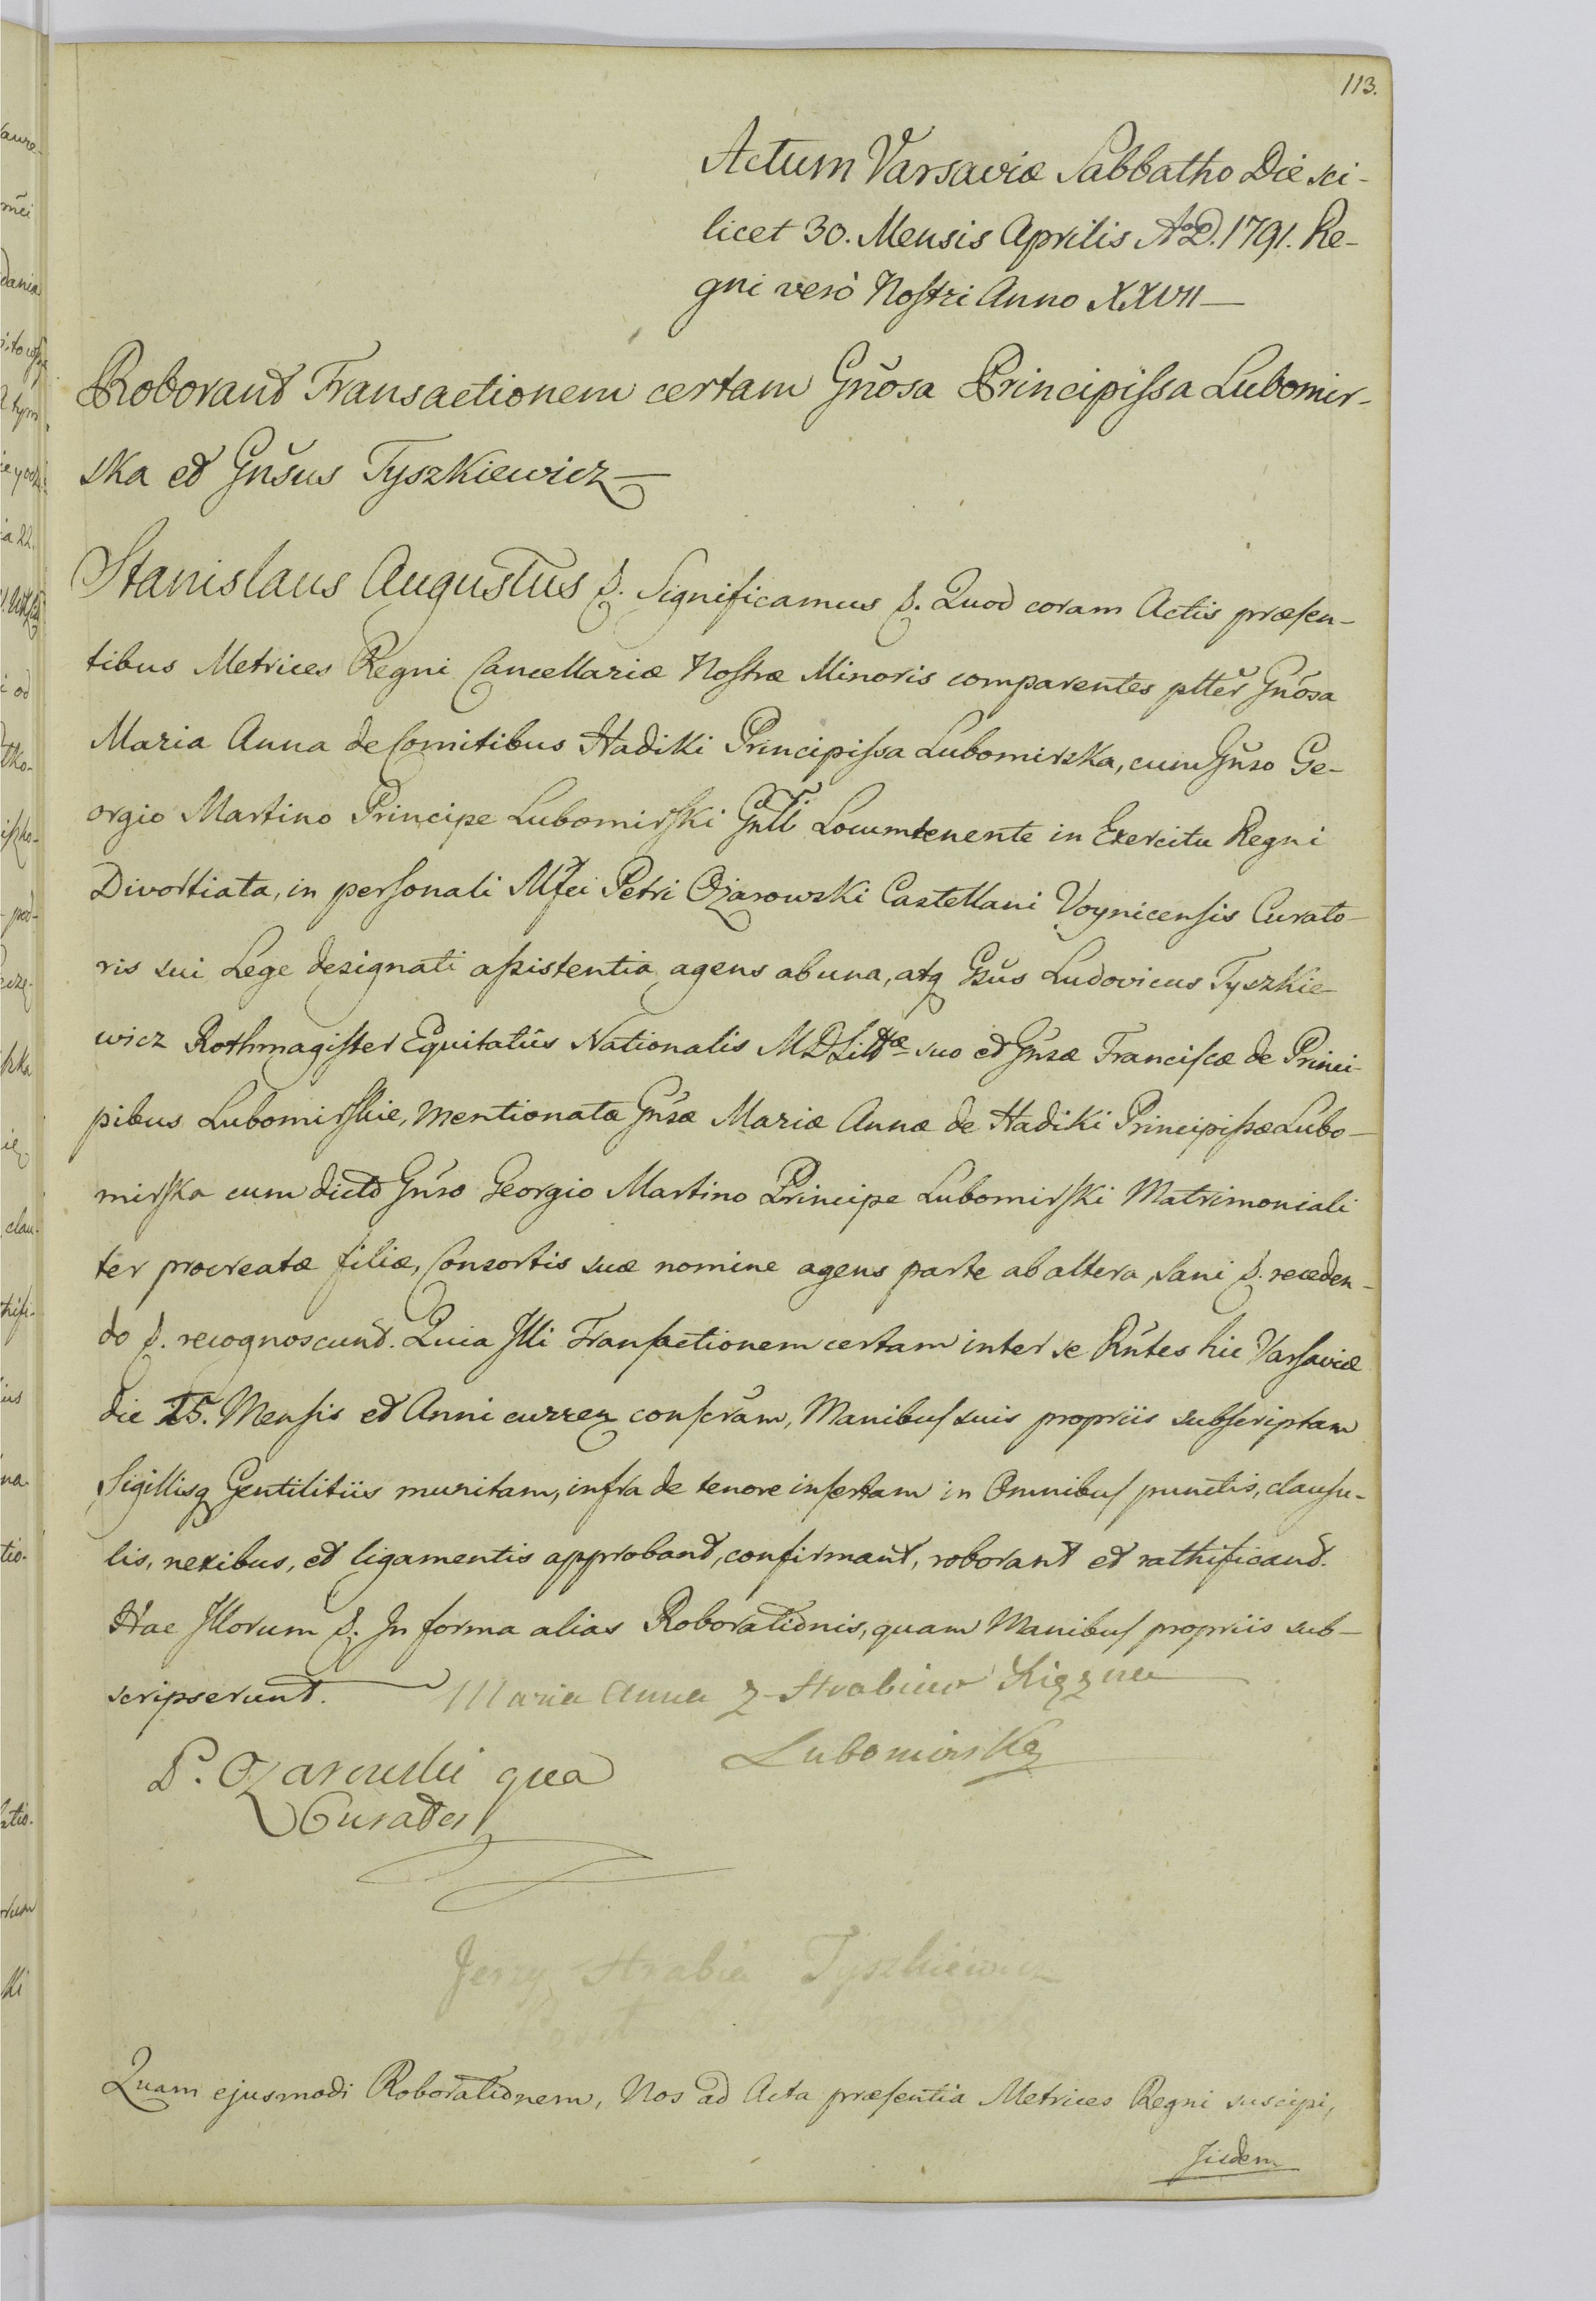 113.
Actum Varsaviæ Sabbatho Die sci-
licet 30. Mensis Aprilis AoD. 1791. Re-
gni verò Noſtri Anno XXVII—
Roborant Transactionem certam Gnosa Principiſsa Lubomir-
ska et Gnsus Tyszkiewicz—
Stanislaus Augustus &. Significamus &. Quod coram Actis præſen-
tibus Metrices Regni Cancellariæ Noſtræ Minoris comparentes pltter Gnosa
Maria Anna de Comitibus Hadiki Principiſsa Lubomirska, cum Gnso Ge-
orgio Martino Principe Lubomirſki Gnlli Locumtenente in Exercitu Regni
Divortiata, in perſonali Mfci Petri Ożarowski Castellani Voynicenſis Curato-
ris sui Lege designati aſsistentia agens ab una, atq Gsus Ludovicus Tyszkie-
wicz Rothmagiſter Equitatûs Nationalis MDLittæ suo et Gnsæ Franciſcæ de Princi-
pibus Lubomirſkie, mentionatæ Gnsæ Mariæ Annæ de Hadiki Principiſsæ Lubo-
mirſka cum dicto Gnso Georgio Martino Principe Lubomirſki Matrimoniali
ter procreatæ filiæ, Consortis suæ nomine agens parte ab altera, sani &. receden-
do &. recognoscunt. Quia Illi Tranſactionem certam inter se Rntes hic Varſaviæ
die 15. Menſis et Anni curren conſctam, Manibuſ suis propriis subſcriptam
Sigillisq Gentilitiis munitam, infra de tenore inſertam in Omnibuſ punctis, clauſu-
lis, nexibus, et ligamentis approbant, confirmant, roborant et rathificant.
Hac Illorum &. In forma alias Roborationis, quam Manibuſ propriis sub-
scripserunt. Maria Anna z Hrabiow Xiężna
Lubomirska
P. Ożarowski qua
Curator
Jerzy Hrabia Tyszkiewicz
Quam ejusmodi Roborationem, Nos ad Acta præſentia Metrices Regni suscipi,
Jisdem